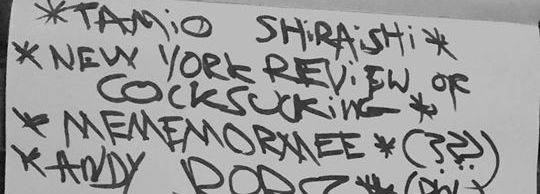 *TAMiO SHiRAiSHi*
*NEW YORK REViEW OF
COCKSUCKiNG*
*MEMEMORMEE*(???)
*ANDY